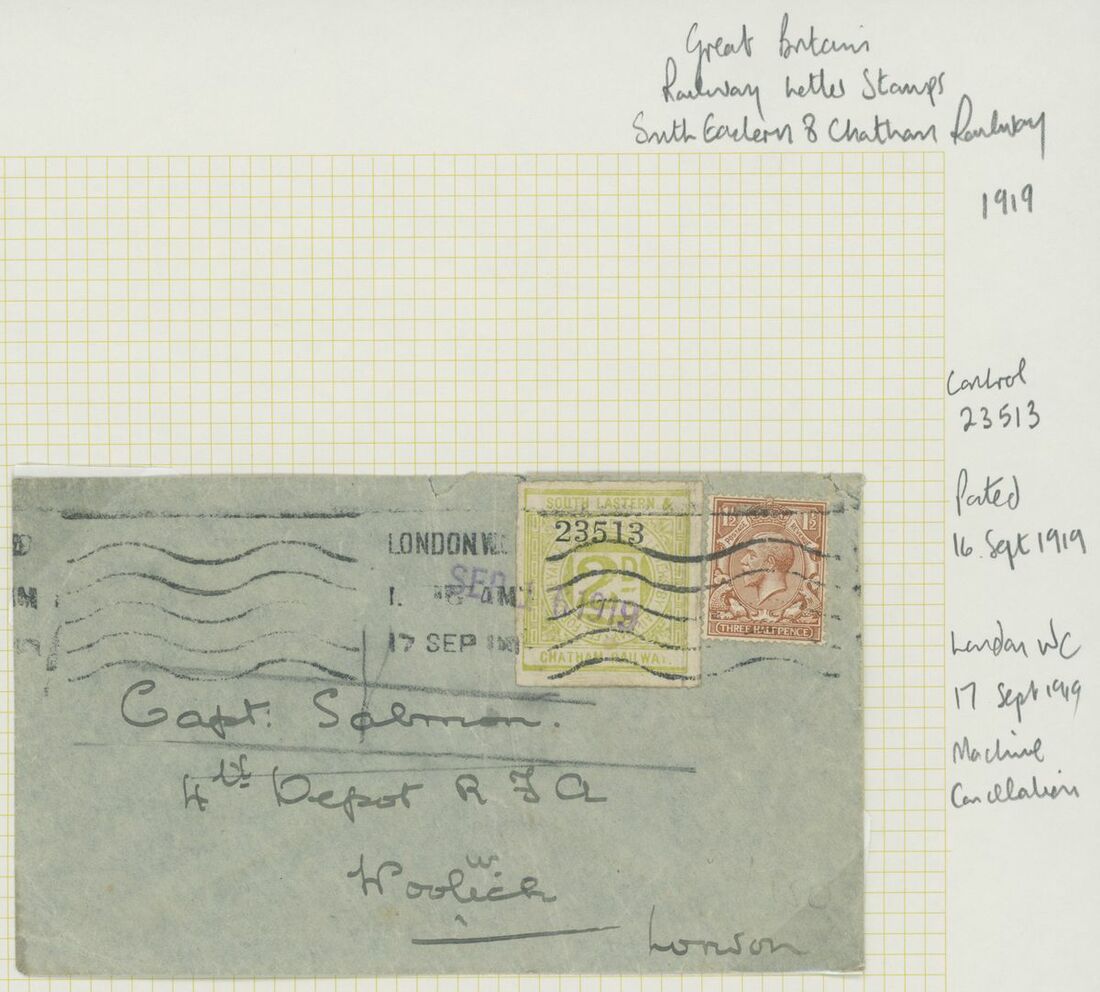 Great Britain
Railway Letter Stamps
South Eastern & Chatham Railway
1919
Control
23513
Dated
16 Sept 1919
London WC
17 Sept 1919
Machine
Cancellation
SOUTH EASTERN &
23513
2D
CHATHAM RAILWAY.
1½ 1½
THREE HALFPENCE
LONDON W.
AM
17 SEP
SEP 16 1919
Capt. Salmon.
4th Depot R F A
Woolwich
London